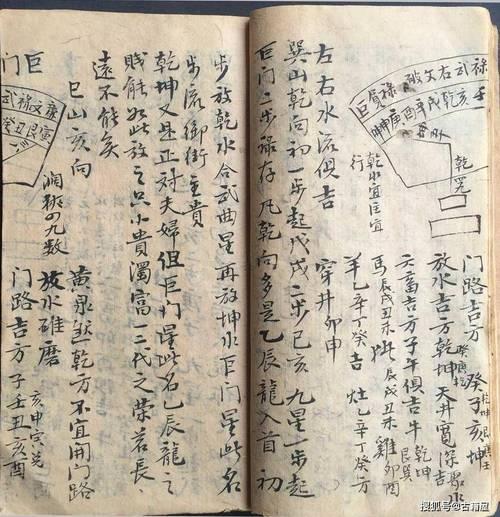 門路吉方 癸子亥坤
放水吉方乾坤 天井寬深聚水吉
六畜吉方子午俱吉 牛 乾坤艮巽
馬辰戌丑未 猪辰戌丑未 雞卯酉
羊乙辛丁癸吉 灶乙辛丁癸方
乾水宜宜
行
穿井卯申
左右水流俱吉
巽山乾向初一步起戊戌二步己亥 九星一步起
巨门二步禄存凡乾向多是乙辰龍入首 初
步放乾水合武曲星再放坤水巨门星此名
步流御街主貴
乾坤又是正对夫婦但巨门星此名乙辰龍之
賤能如此放之只小貴濁富一二代之荣若長
遠不能矣
巳山亥向
九数
黄泉乾方不宜開门路
放水碓磨 亥申
门路吉方 子壬丑亥酉
巨
门
搜狐号@古籍屋